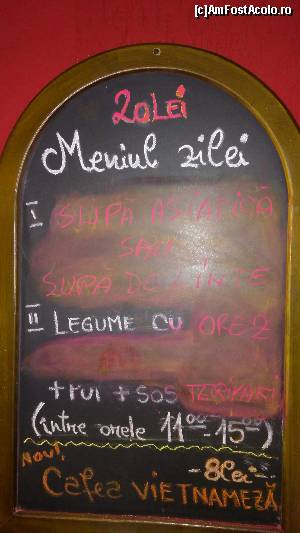 [c]AmFostAcolo.ro
20LEI
Meniul zilei
I SUPĂ ASIATICĂ
SAU
SUPĂ DE LINTE
II LEGUME CU OREZ
+ PUI + SOS TERIYAKI
(între orele 11⁰⁰-15⁰⁰)
NOU!
-8lei-
Cafea VIETNAMEZĂ